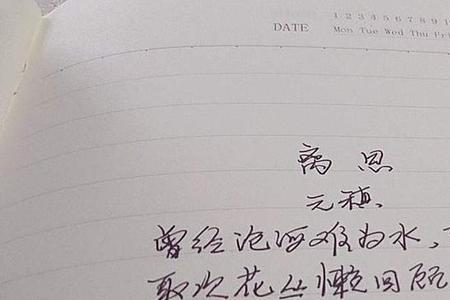 1 2 3 4 5 6 7 8 9 1
DATE Mon Tue Wed Thu Fri
离思
元稹
曾经沧海难为水,
取次花丛懒回顾